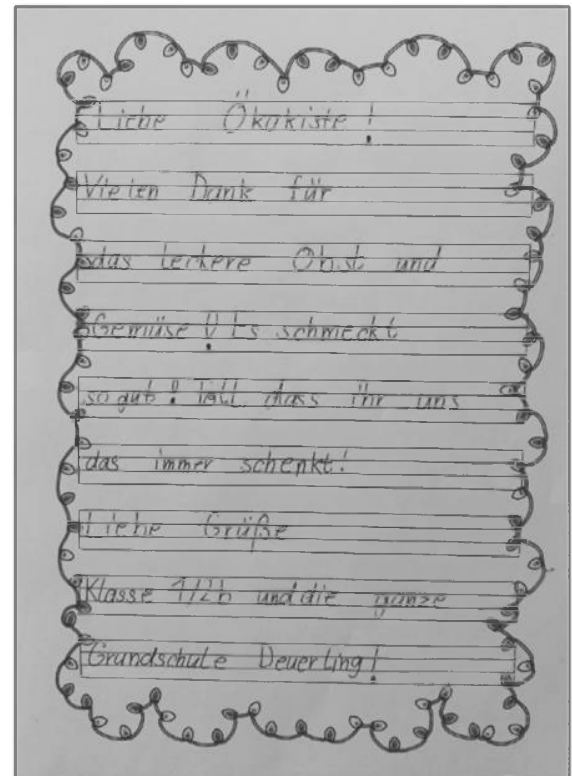 Liebe Ökokiste!
Vielen Dank für
das leckere Obst und
Gemüse! Es schmeckt
so gut! Toll dass ihr uns
das immer schenkt!
Liebe Grüße
Klasse 1/2b und die ganze
Grundschule Deuerling!